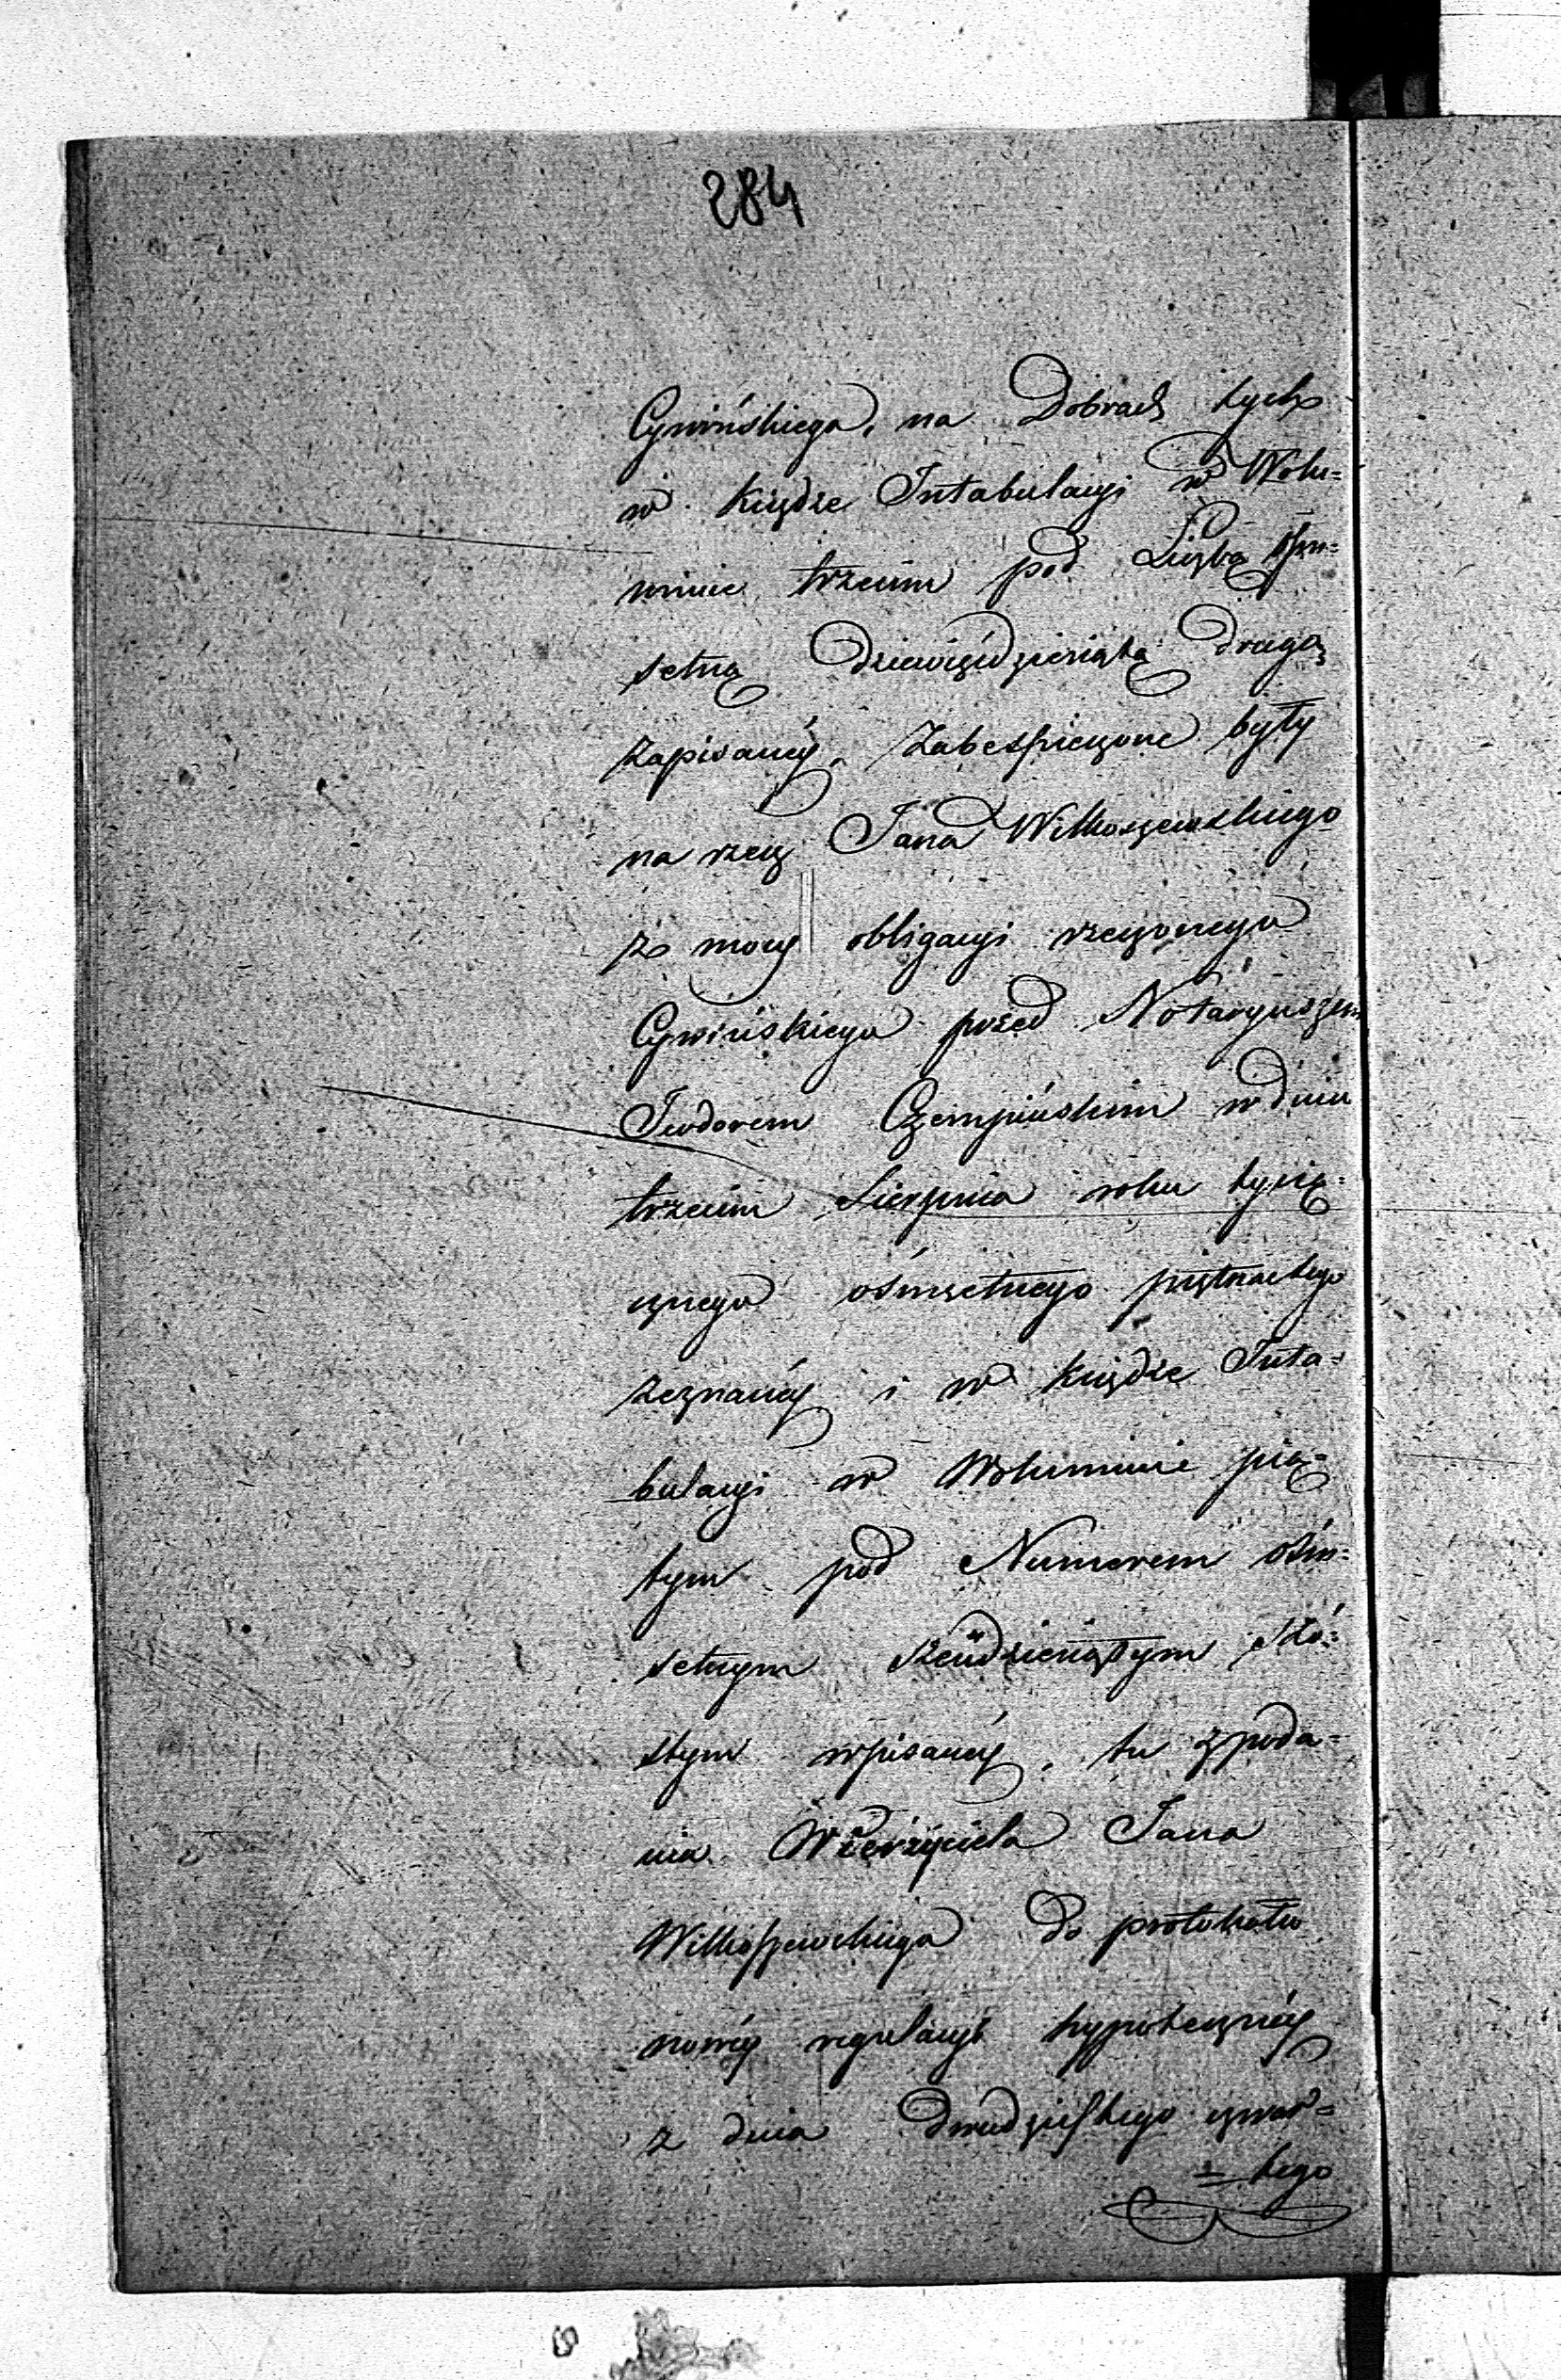 284
Cywińskiego, na Dobrach tych
w Księdze Intabulacyi w Wolu=
minie trzecim pod Liczbą ośm=
setną Dziewięćdziesiątą drugą
zapisanéy, zabespieczone były
na rzecz Jana Wilkoszewskiego
z mocy obligacyi rzeczonego
Cywińskiego przed Notaryuszem
Teodorem Czempińskim w dniu
trzecim Sierpnia roku tysią=
cznego ośmsetnego piętnastego
zeznanéy i w księdze Inta=
bulacyi w Woluminie pią=
tym pod Numerem ośm=
setnym sześćdziesiątym szó=
stym wpisanéy, tu z poda=
nia Wierzyciela Jana
Wilkoszewskiego do protokołu
nowéy regulacyi hypotecznéy
z dnia Dwudziestego czwar=
= tego